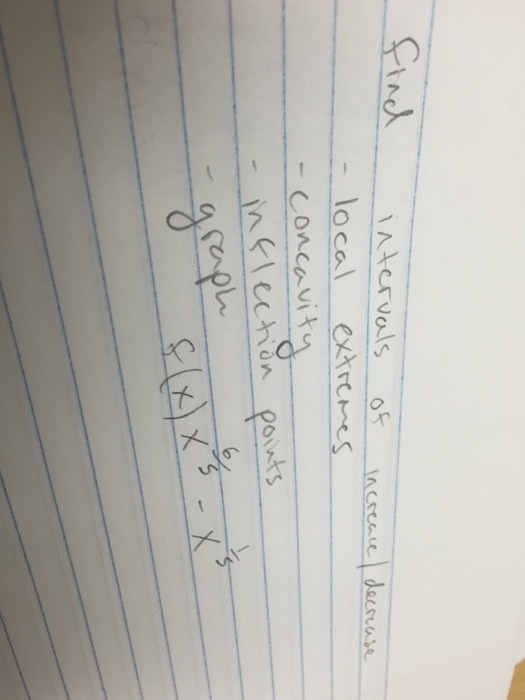 find intervals of increase/decrease
- local extremes
- concavity
- inflection points
- graph
f(x) x^6/5 - x^1/5